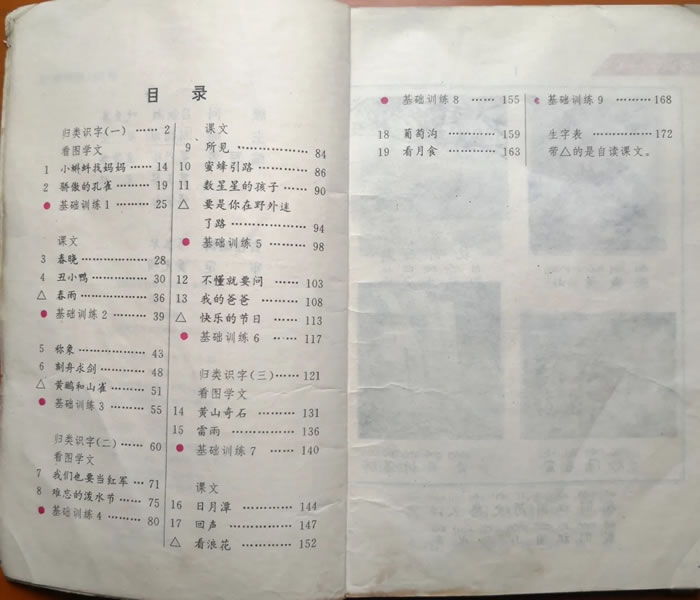 目 录
归类识字(一) …… 2
看图学文
1 小蝌蚪找妈妈 …… 14
2 骄傲的孔雀 …… 19
● 基础训练1 …… 25
课文
3 春晓 …… 28
4 丑小鸭 …… 30
△ 春雨 …… 36
● 基础训练2 …… 39
5 称象 …… 43
6 刻舟求剑 …… 48
△ 黄鹂和山雀 …… 51
● 基础训练3 …… 55
归类识字(二) …… 60
看图学文
7 我们也要当红军 …… 71
8 难忘的泼水节 …… 75
● 基础训练4 …… 80
课文
9 所见 …… 84
10 蜜蜂引路 …… 86
11 数星星的孩子 …… 90
△ 要是你在野外迷
了路 …… 94
● 基础训练5 …… 98
12 不懂就要问 …… 103
13 我的爸爸 …… 108
△ 快乐的节日 …… 113
● 基础训练6 …… 117
归类识字(三) …… 121
看图学文
14 黄山奇石 …… 131
15 雷雨 …… 136
● 基础训练7 …… 140
课文
16 日月潭 …… 144
17 回声 …… 147
△ 看浪花 …… 152
● 基础训练8 …… 155
18 葡萄沟 …… 159
19 看月食 …… 163
● 基础训练9 …… 168
生字表 …… 172
带△的是自读课文。